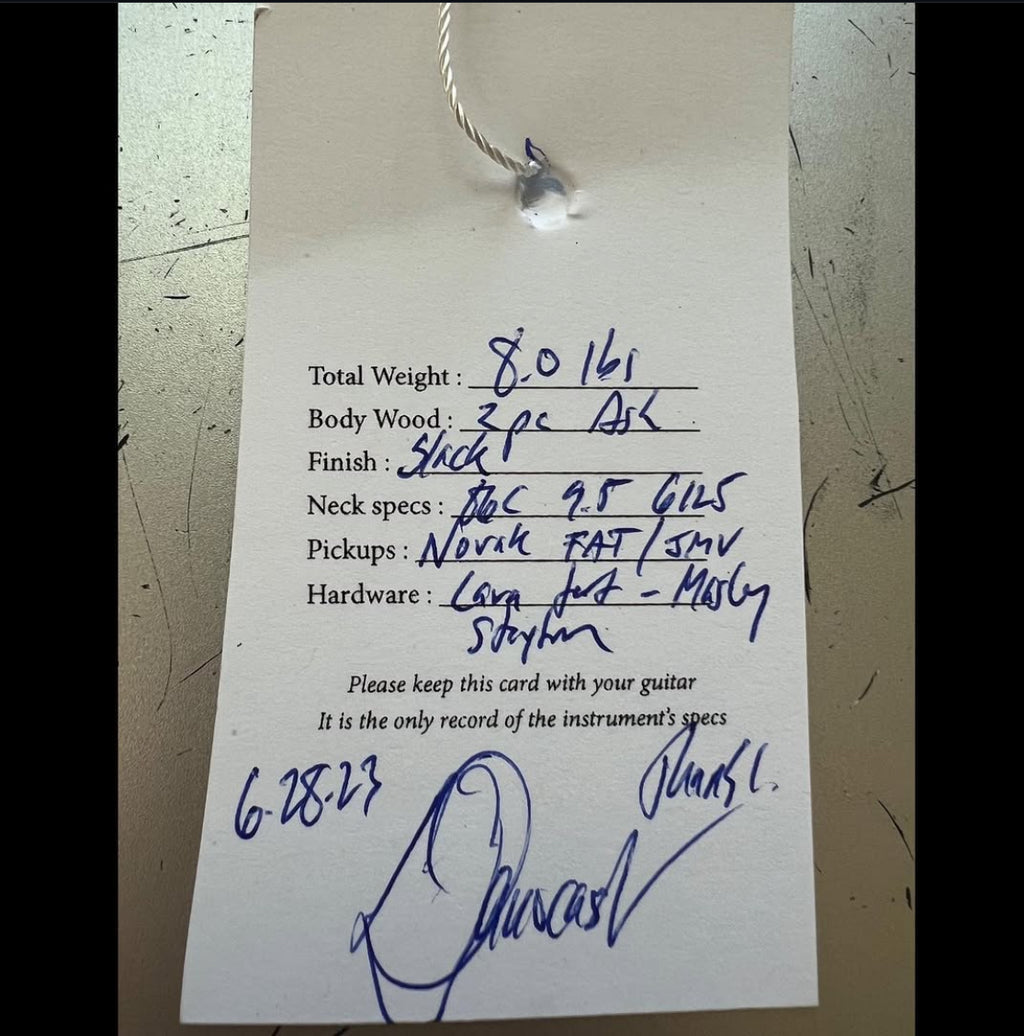 Total Weight : 8.0 lbs
Body Wood : 2 pc Ash
Finish : Black
Neck specs : 9.5 6125
Pickups : Novak FAT / JMV
Hardware : - Mosley
Please keep this card with your guitar
It is the only record of the instrument's specs
6-28-23
Thanks.
Danocaster